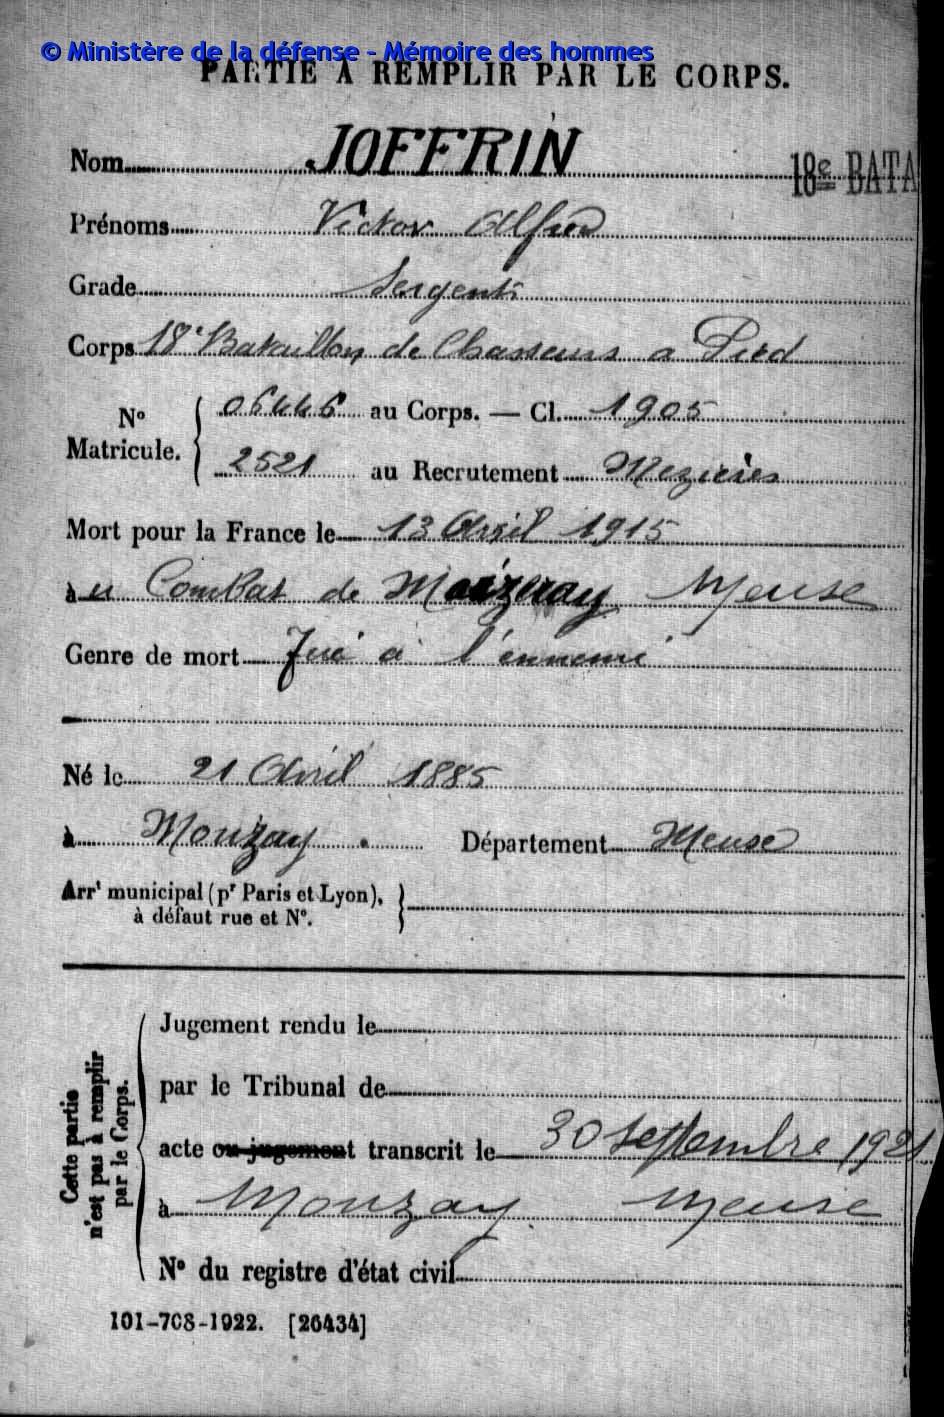 © Ministère de la défense - Mémoire des hommes
PARTIE À REMPLIR PAR LE CORPS.
Nom JOFFRIN
18e BATA
Prénoms Victor Alfred
Grade Sergent
Corps 18e Bataillon de Chasseurs a Pied
N° Matricule. { 06446 au Corps. — Cl. 1905
2521 au Recrutement Mezieres
Mort pour la France le 13 Avril 1915
à u Combat de Meuse
Genre de mort Tué à l'ennemi
Né le 21 Avril 1885
à Mouzay . Département Meuse
Arrt municipal (pr Paris et Lyon), }
à défaut rue et N°.
Cette partie n'est pas à remplir par le Corps.
Jugement rendu le
par le Tribunal de
acte ou jugement transcrit le 30 septembre 1921
à Mouzay Meuse
N° du registre d'état civil
101-708-1922. [26434]